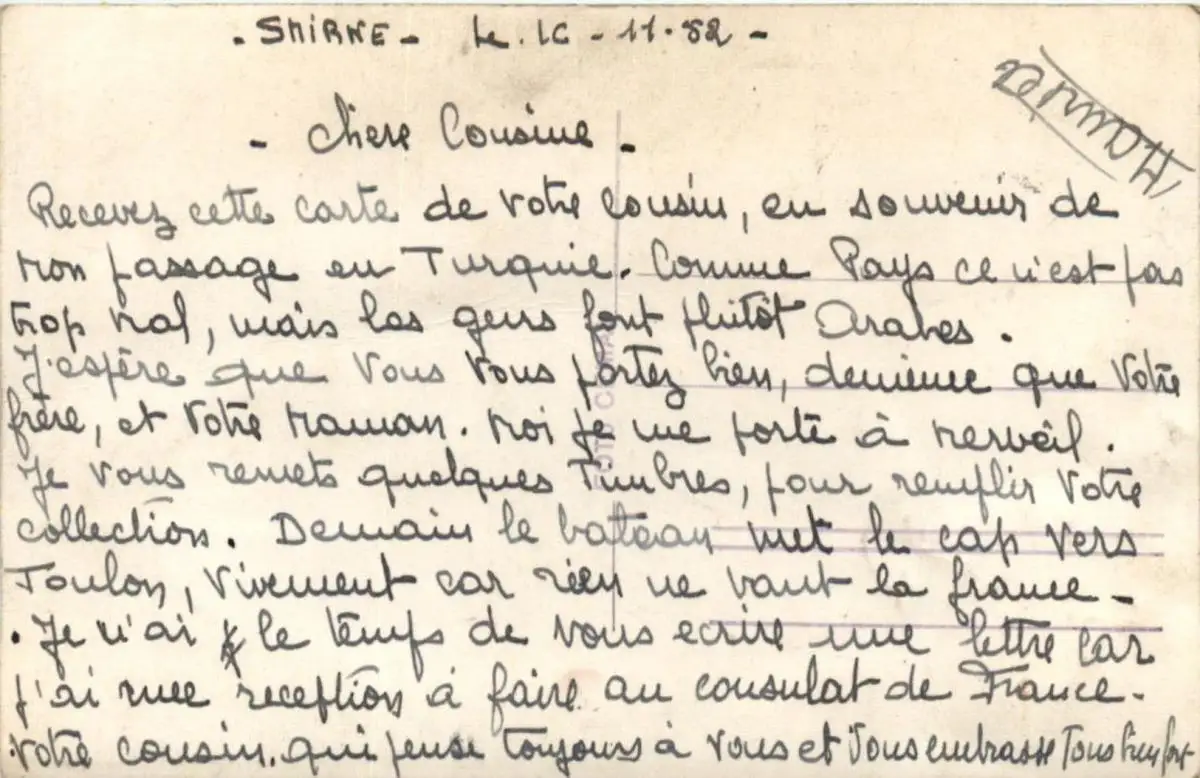 - SMIRNE - Le. 16 - 11 - 52 -
- Chere Cousine -
Recevez cette carte de votre cousin, en souvenir de
mon passage en Turquie. Comme Pays ce n'est pas
trop mal, mais les gens font plutôt Arabes.
J'espère que vous vous portez bien, demieme que votre
frère, et votre maman. moi je me porte à merveil.
Je vous remets quelques Timbres, pour remplir votre
collection. Demain le bateau met le cap vers
Toulon, vivement car rien ne vaut la france -
. Je n'ai le temps de vous ecrire une lettre car
j'ai une reception à faire au consulat de France -
votre cousin. qui pense toujours à vous et vous embrasse Tous bien fort